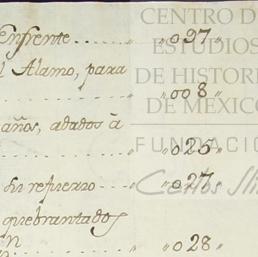 enfrente ....... „ „ 097 „
l Alamo, para
....... „ 008 „
años, adados à
....... „ 025 „
su refuerzo ... „ 027 „
quebrantados
n ....... „ 028 „
CENTRO DE
ESTUDIOS
DE HISTORI
DE MÉXICO
FUNDACIÓ
Carlos Sli